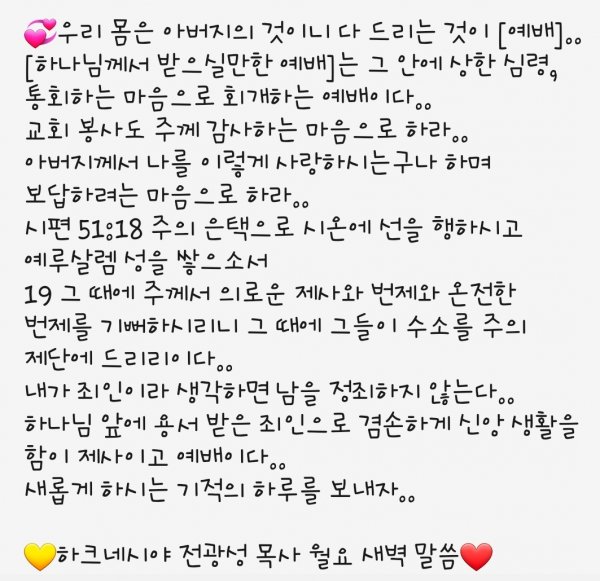 💞우리 몸은 아버지의 것이니 다 드리는 것이 [예배]..
[하나님께서 받으실만한 예배]는 그 안에 상한 심령,
통회하는 마음으로 회개하는 예배이다..
교회 봉사도 주께 감사하는 마음으로 하라..
아버지께서 나를 이렇게 사랑하시는구나 하며
보답하려는 마음으로 하라..
시편 51:18 주의 은택으로 시온에 선을 행하시고
예루살렘 성을 쌓으소서
19 그 때에 주께서 의로운 제사와 번제와 온전한
번제를 기뻐하시리니 그 때에 그들이 수소를 주의
제단에 드리리이다..
내가 죄인이라 생각하면 남을 정죄하지 않는다..
하나님 앞에 용서 받은 죄인으로 겸손하게 신앙 생활을
함이 제사이고 예배이다..
새롭게 하시는 기적의 하루를 보내자..
💛하크네시야 전광성 목사 월요 새벽 말씀❤️